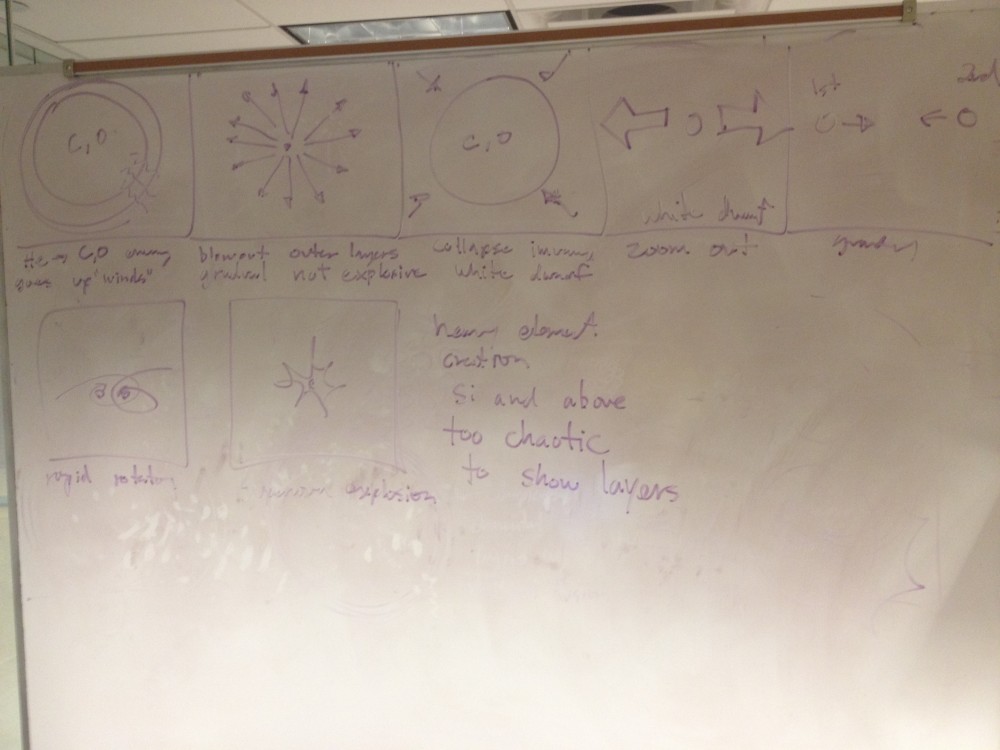 C,O
C,O
1st
2nd
white dwarf
He → C,O
goes up "winds"
blowout outer layers
gradual not explosive
collapse inward,
white dwarf
zoom out
gravity
rapid rotation
explosion
heavy element
creation
Si and above
too chaotic
to show layers